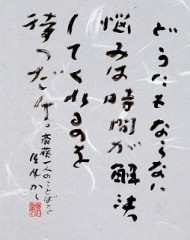 どうにもならない
悩みは時間が解決
してくれるのを
待つだけ。
斎藤一人のことばより